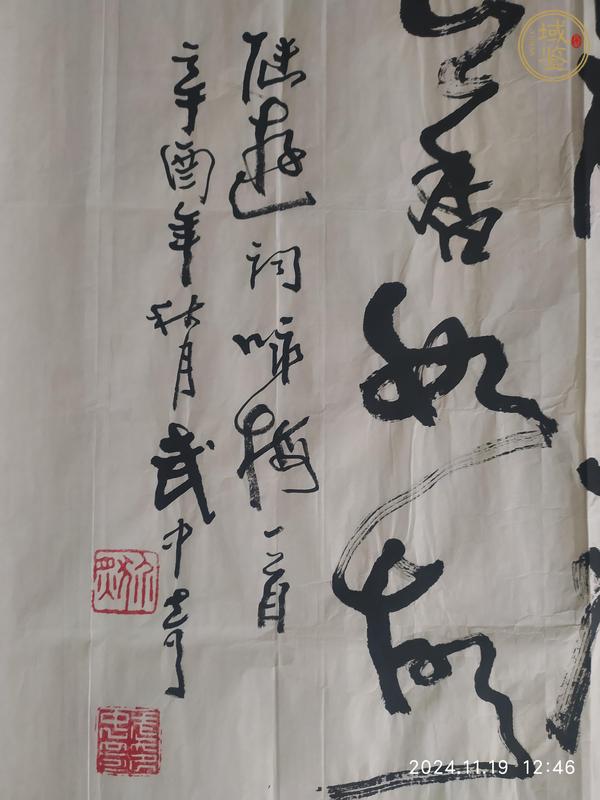 香如故
陆游词咏梅一首
辛酉年秋月武中奇
域鉴
2024.11.19 12:46